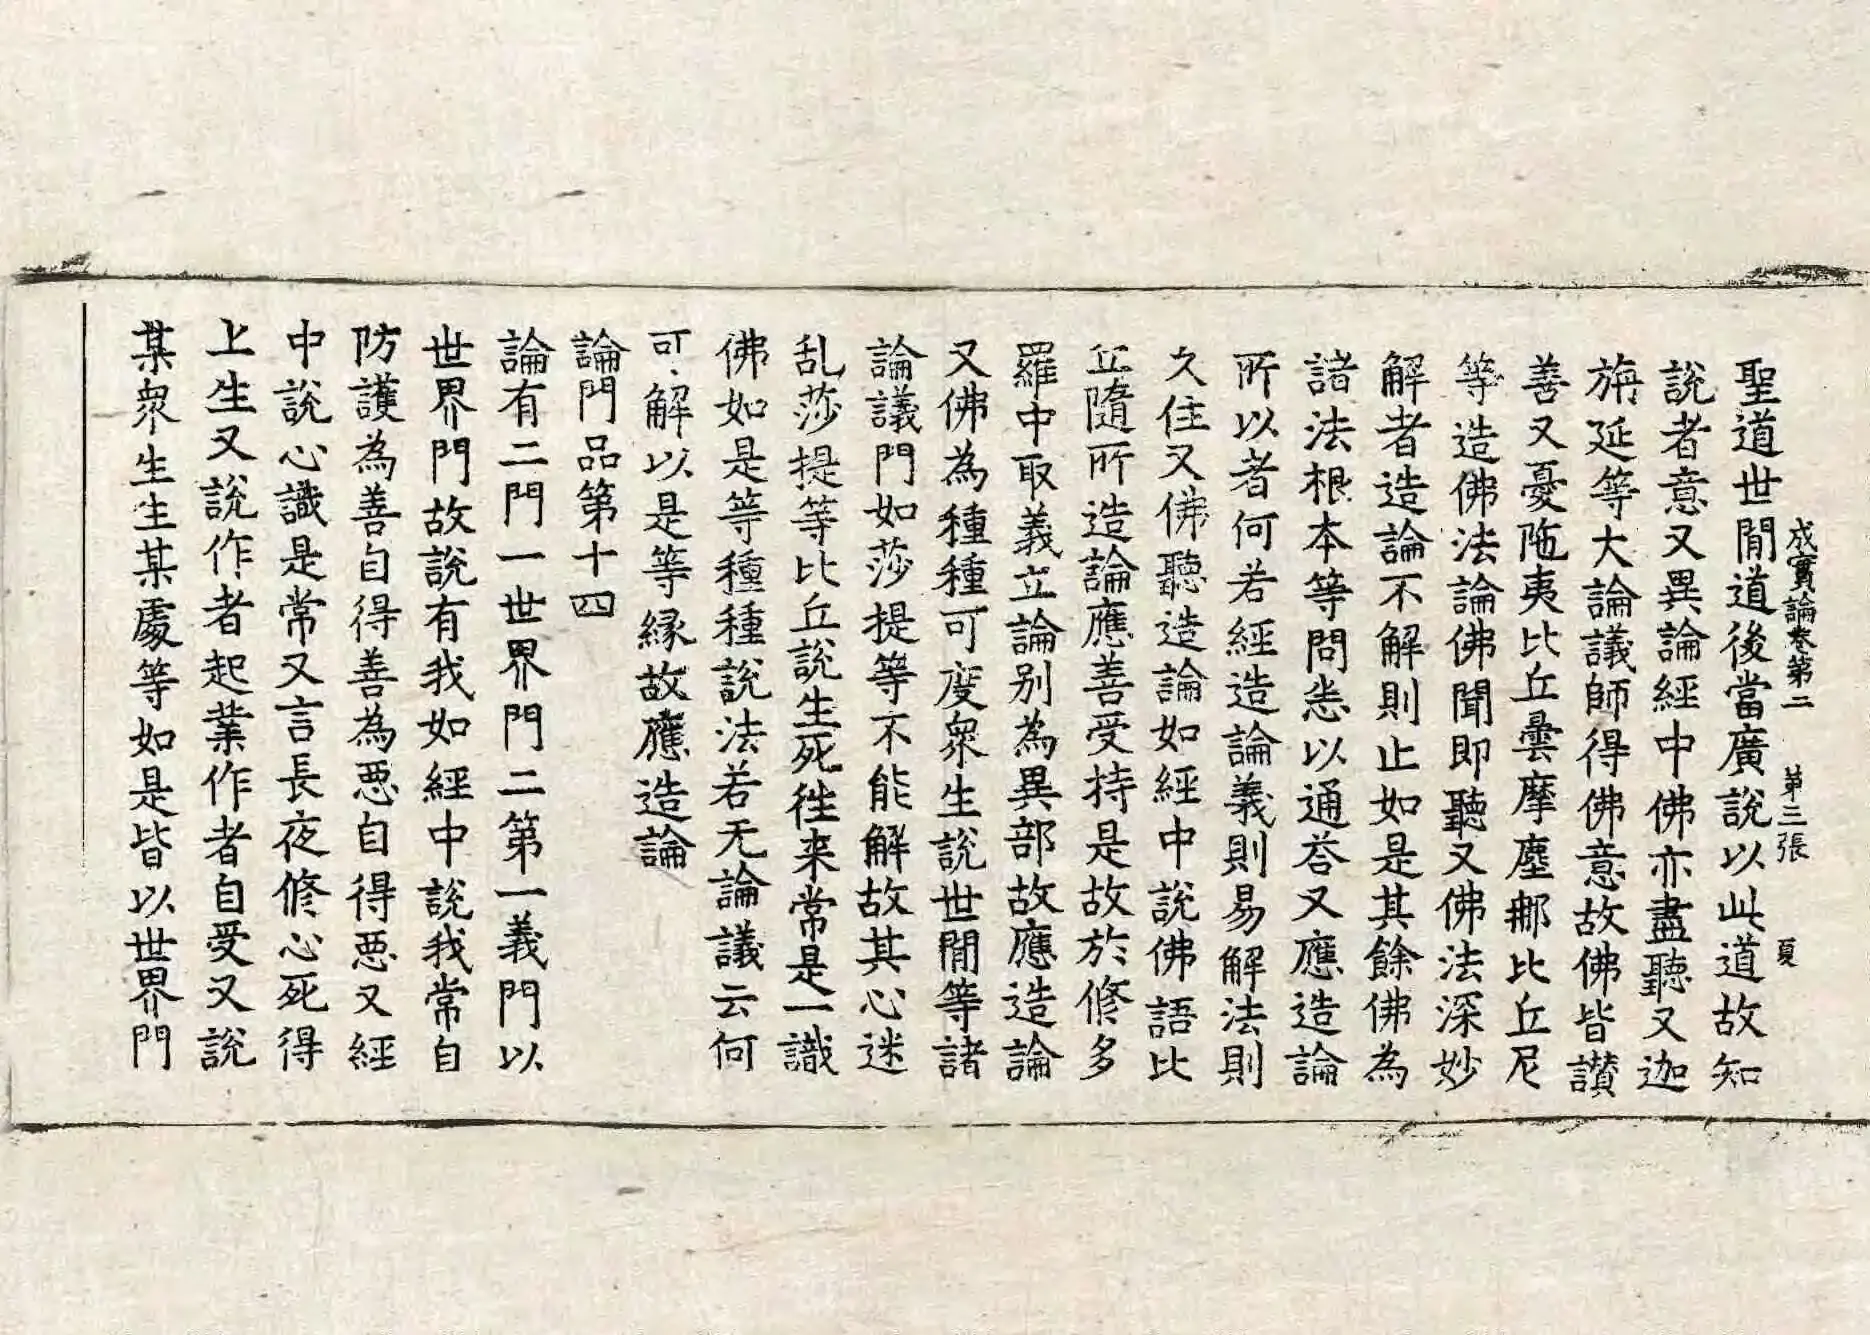 成實論卷第二 第三張 夏
聖道世閒道後當廣說以此道故知
說者意又異論經中佛亦盡聽又迦
旃延等大論議師得佛意故佛皆讃
善又憂陁夷比丘曇摩塵𨚗比丘尼
等造佛法論佛聞即聽又佛法深妙
解者造論不解則止如是其餘佛為
諸法根本等問悉以通荅又應造論
所以者何若經造論義則易解法則
久住又佛聽造論如經中說佛語比
丘隨所造論應善受持是故於修多
羅中取義立論别為異部故應造論
又佛為種種可度衆生說世閒等諸
論議門如莎提等不能解故其心迷
乱莎提等比丘說生死徃来常是一識
佛如是等種種說法若无論議云何
可解以是等縁故應造論
論門品第十四
論有二門一世界門二第一義門以
世界門故說有我如經中說我常自
防護為善自得善為惡自得惡又經
中說心識是常又言長夜修心死得
上生又說作者起業作者自受又說
某衆生生某處等如是皆以世界門